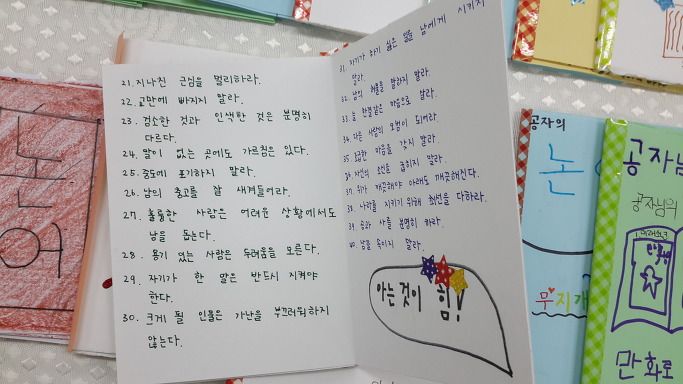 21. 지나친 근심을 멀리하라.
22. 교만에 빠지지 말라.
23. 검소한 것과 인색한 것은 분명히
다르다.
24. 말이 없는 곳에도 가르침은 있다.
25. 중도에 포기하지 말라.
26. 남의 충고를 잘 새겨들어라.
27. 훌륭한 사람은 어려운 상황에서도
남을 돕는다.
28. 용기 있는 사람은 두려움을 모른다.
29. 자기가 한 말은 반드시 지켜야
한다.
30. 크게 될 인물은 가난을 부끄러워하지
않는다.
31. 자기가 하기 싫은 일을 남에게 시키지
말라.
32. 남의 허물을 말하지 말라.
33. 늘 한결같은 마음으로 살라.
34. 다른 사람의 모범이 되어라.
35. 조급한 마음을 갖지 말라
36. 자신의 소신을 굽히지 말라.
37. 위가 깨끗해야 아래도 깨끗해진다.
38. 나라를 지키기 위해 최선을 다하라.
39. 공과 사를 분명히 하라.
40. 남을 속이지 말라.
아는 것이 힘!
공자의
논
무지개
공자님
공자님의
만화로